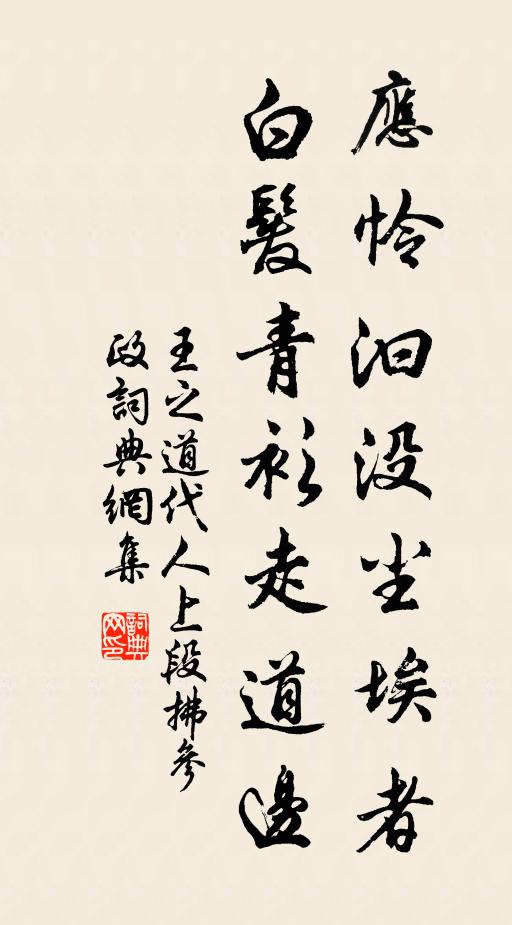 應怜汩没尘埃者
白髮青衫走道邊
王之道代人上段拂參
政詞典網集
詞典网印